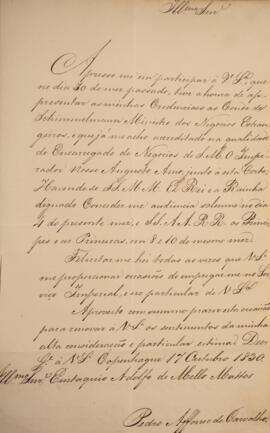 Illmo Snr.
Apresso me em participar à V. Sª. que
no dia 30 do mez passado, tive a honra de ap-
presentar as minhas Credenciaes ao Conde de
Schimmelmann Ministro dos Negocios Estran-
geiros, e que já me acho acreditado na qualidade
de Encarregado de Negocios de S. M. O Impe-
rador Nosso Augusto Amo, junto à esta Corte,
Havendo-se S. M. M. El Rei e a Rainha
dignado Conceder me audiencia solumne no dia
4 do presente mez, e S. A. A. R. R. os Princi-
pes e as Princezas, em 8 e 10 do mesmo mez.
Felicitar me hei todas as vezes que V. Sª.
me proporcionar occasiões de empregar me no Ser-
viço Imperial, e no particular de V. Sª.
Aproveito com summo prazer esta occasião
para renovar à V. Sª. os sentimentos da minha
alta consideração e particular estima. Deos
Gᵉ. à V. Sª. Copenhague 17 Outubro 1830.
Illmo Snr. Eustaquio Adolfo de Mello Mattos
Pedro Affonso de Carvalho